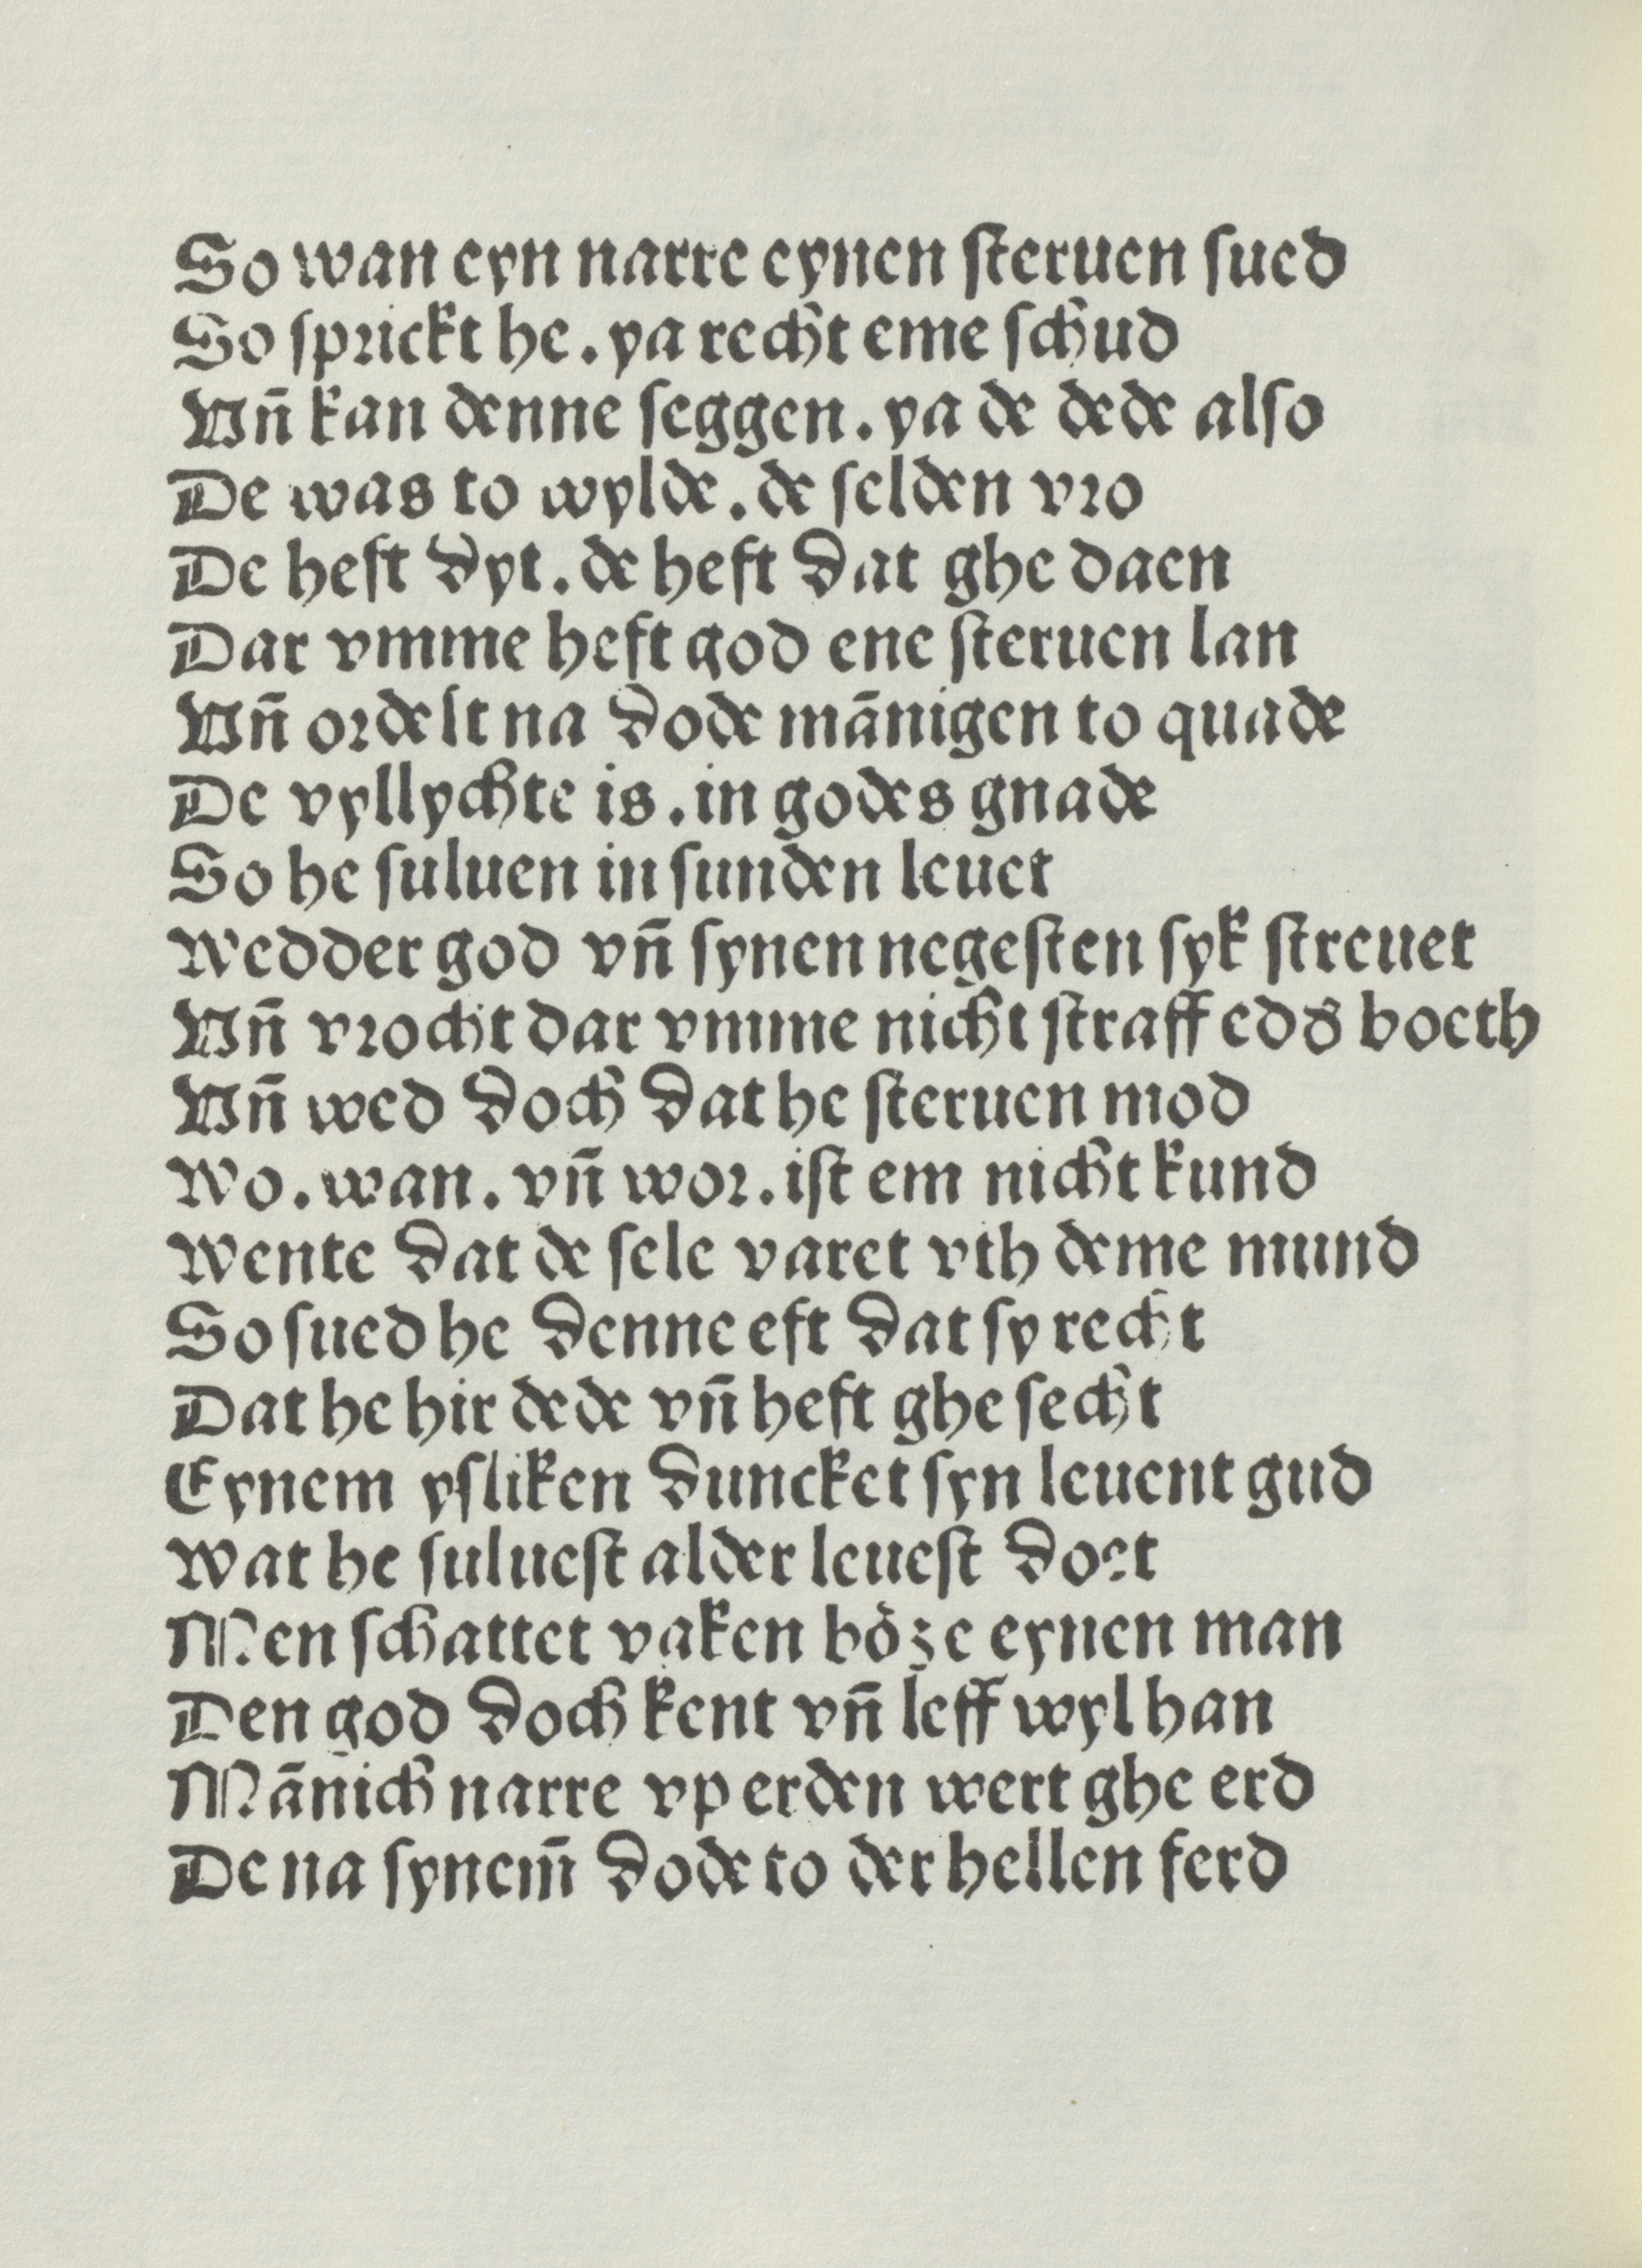 So wan eyn narre eynen ſteruen ſued
So ſprickt he . ya recht eme ſchud
Vn̄ kan denne ſeggen . ya de dede alſo
De was to wylde . de ſelden vro
De heft dyt . de heft dat ghe daen
Dar vmme heft god ene ſteruen lan
Vn̄ ordelt na dode mānigen to quade
De vyllychte is . in godes gnade
So he ſuluen in ſunden leuet
Wedder god vn̄ ſynen negeſten ſyk ſtreuet
Vn̄ vrocht dar vmme nicht ſtraff edď boeth
Vn̄ wed doch dat he ſteruen mod
Wo . wan . vn̄ wor . iſt em nicht kund
Wente dat de ſele varet vth deme mund
So ſued he denne eft dat ſy recht
Dat he hir dede vn̄ heft ghe ſecht
Eynem yſliken duncket ſyn leuent gud
Wat he ſulueſt alder leueſt doet
Men ſchattet vaken böze eynen man
Den god doch kent vn̄ leff wyl han
Mānich narre vp erden wert ghe erd
De na ſynem̄ dode to der hellen ferd